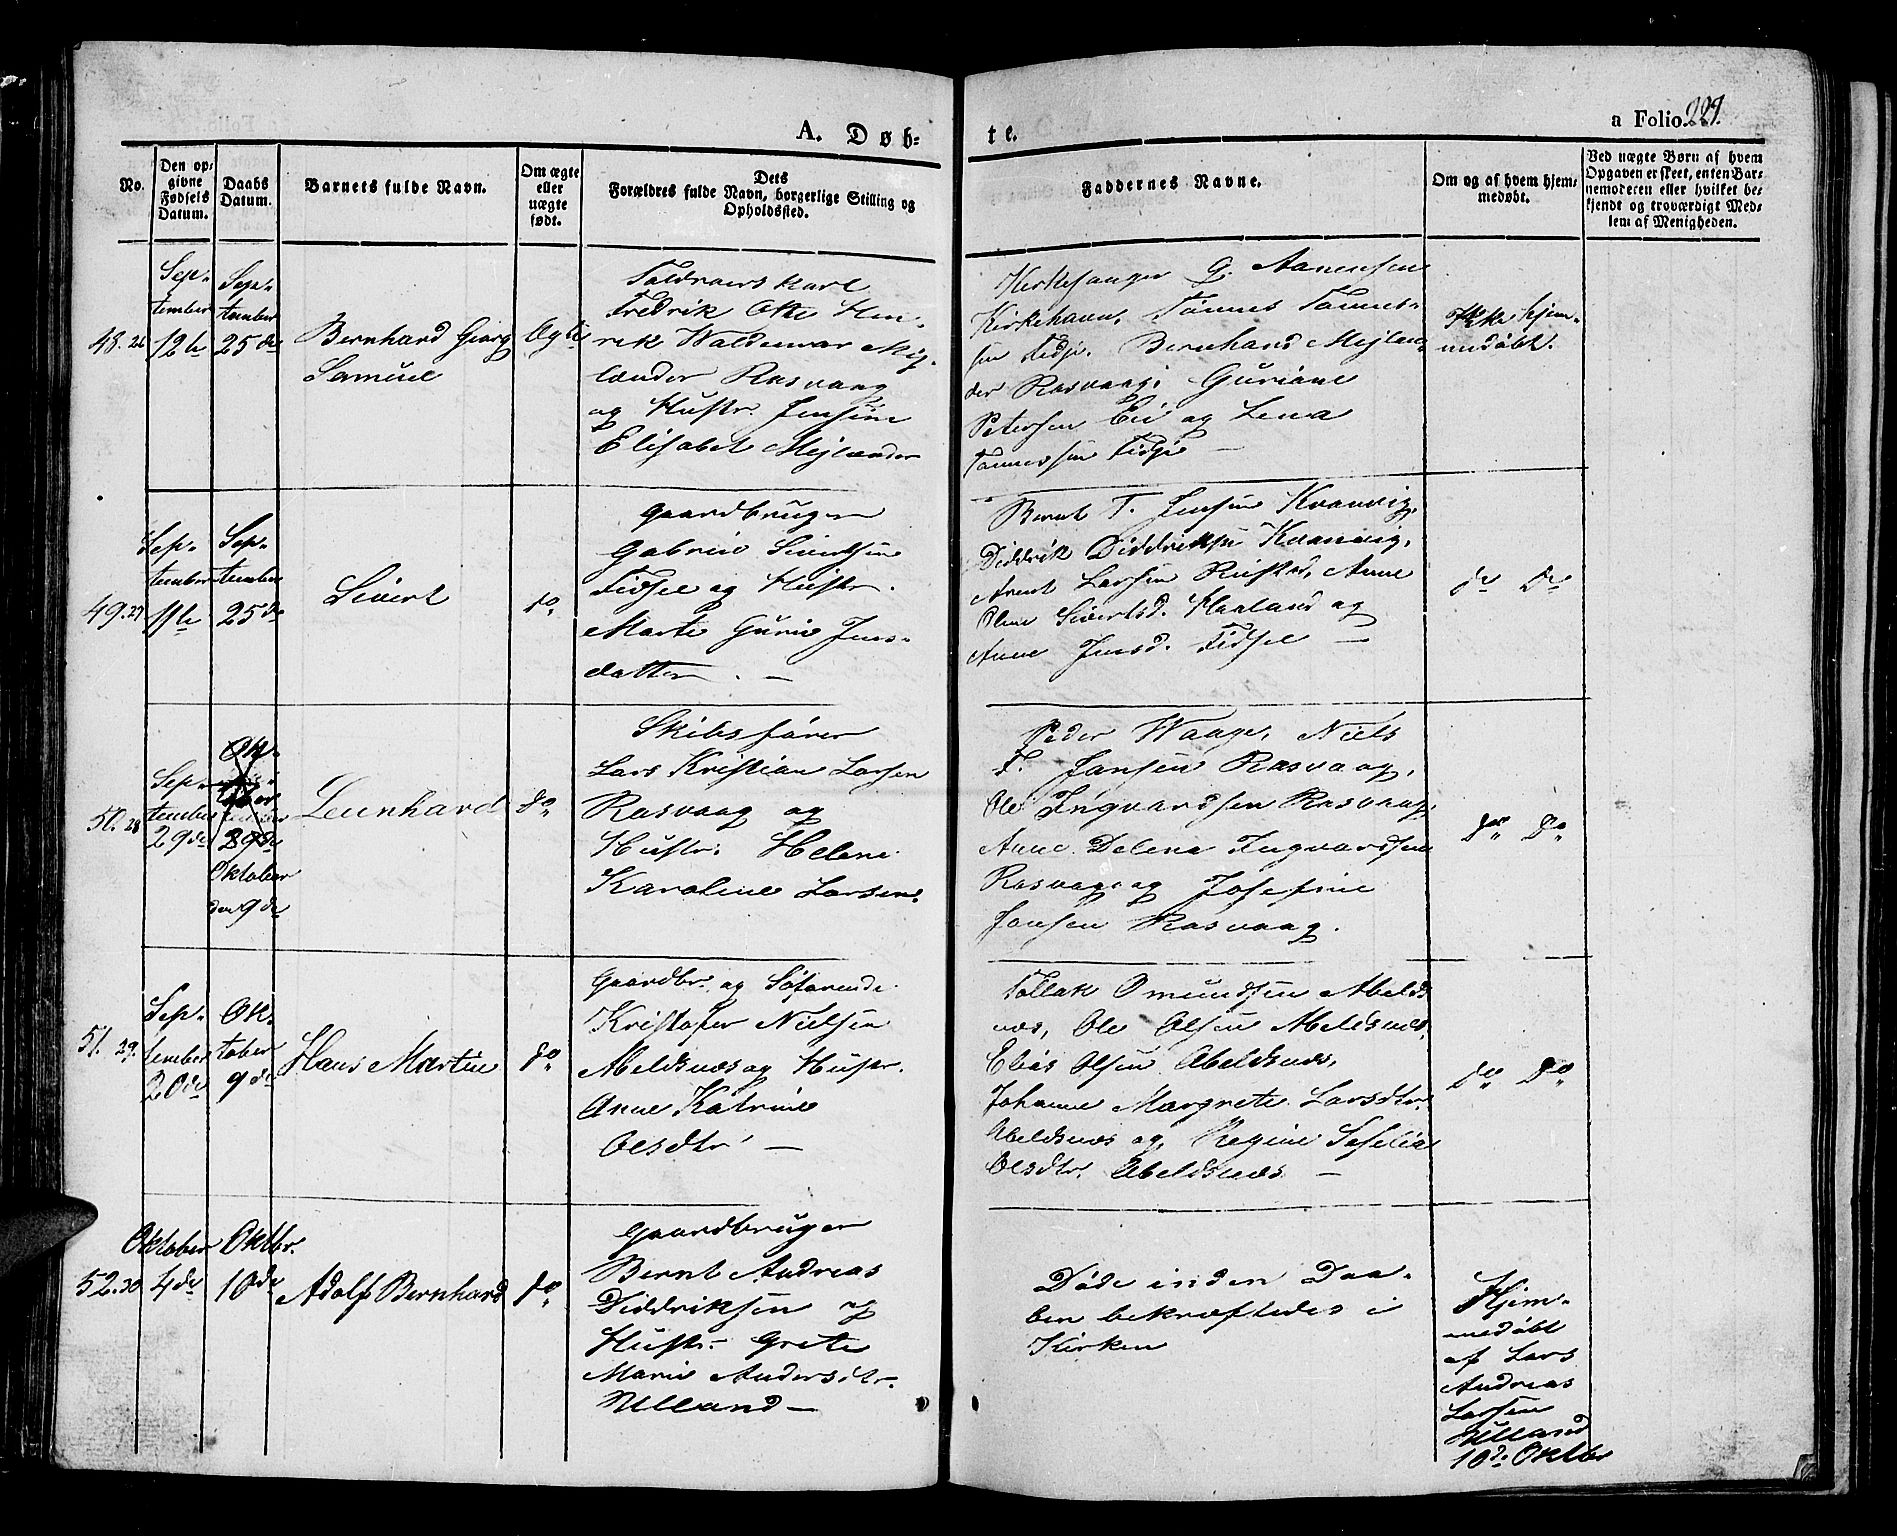 A. Døb-
te.
a Folio 227.
No.
Den op-
givne
Fødsels
Datum.
Daabs
Datum.
Barnets fulde Navn.
Om ægte
eller
uægte
født.
Dets
Forældres fulde Navn, borgerlige Stilling og
Opholdssted.
Faddernes Navne.
Om og af hvem hjem-
medøbt.
Ved uægte Børn af hvem
Opgaven er skeet, enten Bar-
nemoderen eller hvilket be-
kjendt og troværdigt Med-
lem af Menigheden.
48. 26
Sep-
tember
12te
Sep-
tember
25de
Bernhard Georg
Samuel
Ægte
Toldroerskarl
Fredrik Otto Hen-
rik Waldemar Mej-
lænder Rasvaag
og Hustr. Jensine
Elisabet Mejlænder
Kirkesanger G. Aanensen
Kirkehavn, Tønnes Tønnes-
sen Fidje. Bernhard Mejlæn-
der Rasvaag, Guriane
Petersen Eie og Lena
Tønnessen Fidje —
Ikke hjem-
medøbt.
49. 27
Sep-
tember
Sep-
tember
25de
Sivert
do
Gaardbruger
Gabriel Sivertsen
Fidsel og Hustr.
Marte Gurie Jens-
datter. —
Bernt T. Jensen Kvanvig,
Diddrik Diddriksen Kvanvig,
Arent Larsen Rustad, Anne
Oline Sivertsd. Haaland og
Anne Jensd. Fidsel —
do Do
50. 28
Sep-
tember
29de
Ok-
29de
Oktober
den 9de
Leenhard
do
Skibsfører
Lars Kristian Larsen
Rasvaag og
Hustr. Helene
Karoline Larsen.
Peder Waage, Niels
F. Jansen Rasvaag,
Ole Ingvardsen Rasvaag,
Anne Delena Ingvardsen
Rasvaag og Josefine
Jansen Rasvaag.
do Do
51. 29.
Sep-
tember
20de
Ok-
tober
9de
Hans Martin
do
Gaardbr. og Søfarende
Kristofer Nielsen
Abeldsnæs og Hustr.
Anne Katrine
Olsdtr —
Tollak Omundsen Abelds-
næs, Ole Olsen Abeldsnæs,
Elias Olsen Abeldsnæs,
Johanne Margrete Larsdtr.
Abeldsnæs og Regine Sefelia
Olsdtr. Abeldsnæs. —
do Do
52. 30
Oktober
4de
Oktbr.
10de
Adolf Bernhard
do
Gaardbruger
Bernt Andreas
Diddriksen og
Hustr. Grete
Marie Andersdtr.
Ulland —
Døde inden Daa-
ben bekræftedes i
Kirken
Hjem-
medøbt
af Lars
Andreas
Larsen
Ulland
10de Oktbr